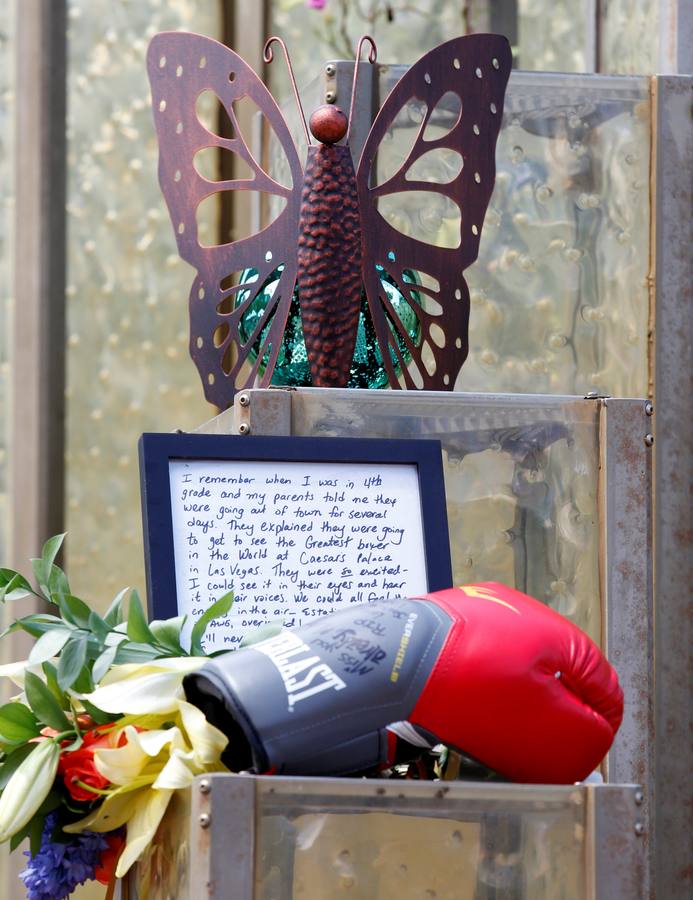 I remember when I was in 4th
grade and my parents told me they
were going out of town for several
days. They explained they were going
to get to see the Greatest boxer
in the World at Caesars Palace
in Las Vegas. They were so excited-
I could see it in their eyes and hear
it in their voices. We could all feel the
energy in the air-
I'll never
EVERLAST
EVERSHIELD
Miss you
already
RIP